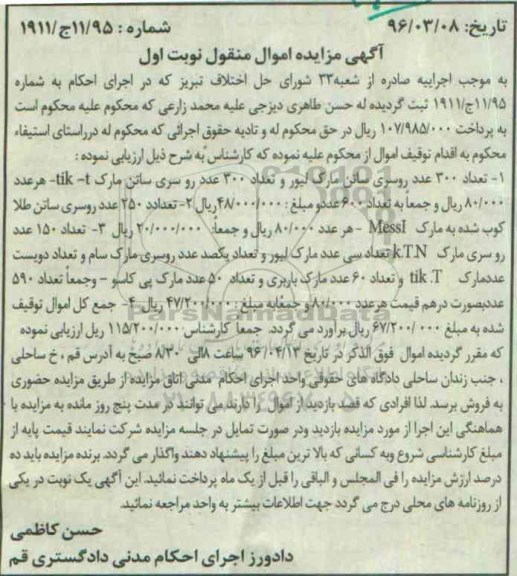 تاریخ: ۹۶/۰۳/۰۸ شماره : ۱۱/۹۵ج/۱۹۱۱
آگهی مزایده اموال منقول نوبت اول
به موجب اجراییه صادره از شعبه۳۳ شورای حل اختلاف تبریز که در اجرای احکام به شماره
۱۱/۹۵ج/۱۹۱۱ ثبت گردیده له حسن طاهری دیزجی علیه محمد زارعی که محکوم علیه محکوم است
به پرداخت ۱۰۷/۹۸۵/۰۰۰ ریال در حق محکوم له و تادیه حقوق اجرائی که محکوم له درراستای استیفاء
محکوم به اقدام توقیف اموال از محکوم علیه نموده که کارشناس به شرح ذیل ارزیابی نموده :
۱- تعداد ۳۰۰ عدد روسری ساتن مارک لیور و تعداد ۳۰۰ عدد رو سری ساتن مارک tik –t- هرعدد
۸۰/۰۰۰ ریال و جمعاً به تعداد ۶۰۰ عددو مبلغ : ۴۸/۰۰۰/۰۰۰ریال ۲- تعدادد ۲۵۰ عدد روسری ساتن طلا
کوب شده به مارک MessI - هر عدد ۸۰/۰۰۰ ریال و جمعا: ۲۰/۰۰۰/۰۰۰ ریال ۳- تعداد ۱۵۰ عدد
رو سری مارک k.T.N تعداد سی عدد مارک لیور و تعداد یکصد عدد روسری مارک سام و تعداد دویست
عددمارک tik .T و تعداد ۶۰ عدد مارک باربری و تعداد ۵۰ عدد مارک پی کاسو – وجمعاً تعداد ۵۹۰
عددبصورت درهم قیمت هرعدد ۸۰/۰۰۰ و جمعابه مبلغ : ۴۷/۲۰۰/۰۰۰ ریال ۴- جمع کل اموال توقیف
شده به مبلغ ۶۷/۲۰۰/۰۰۰ ریال برآورد می گردد. جمعا کارشناس ۱۱۵/۲۰۰/۰۰۰ ریل ارزیابی نموده
که مقرر گردیده اموال فوق الذکر در تاریخ ۹۶/۰۴/۱۲ ساعت ۸الی ۸/۳۰ صبح به آدرس قم ، خ ساحلی
، جنب زندان ساحلی دادگاه های حقوقی واحد اجرای احکام مدنی اتاق مزایده از طریق مزایده حضوری
به فروش برسد. لذا افرادی که قصد بازدید از اموال را دارند می توانند در مدت پنج روز مانده به مزایده با
هماهنگی این اجرا از مورد مزایده بازدید ودر صورت تمایل در جلسه مزایده شرکت نمایند قیمت پایه از
مبلغ کارشناسی شروع وبه کسانی که بالا ترین مبلغ را پیشنهاد دهند واگذار می گردد. برنده مزایده باید ده
درصد ارزش مزایده را فی المجلس و الباقی را قبل از یک ماه پرداخت نمائید. این آگهی یک نوبت در یکی
از روزنامه های محلی درج می گردد جهت اطلاعات بیشتر به واحد مراجعه نمائید.
حسن کاظمی
دادورز اجرای احکام مدنی دادگستری قم
ParsNamadData